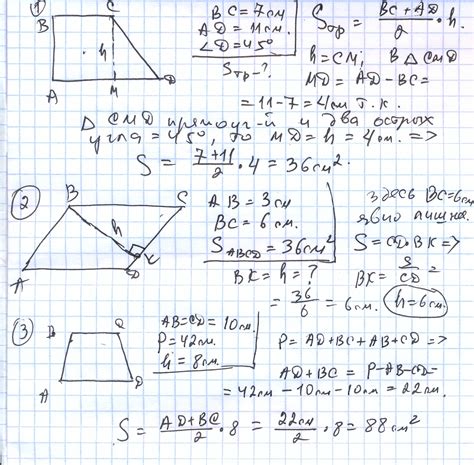 1
B C
h
A M D
BC = 7 см
AD = 11 см.
∠D = 45°
Sтр - ?
Sтр = (BC + AD)/2 · h.
h = CM; В △ CMD
MD = AD - BC =
= 11 - 7 = 4 см т.к.
△ CMD прямоуг-й и два острых
угла = 45°, то MD = h = 4 см. =>
S = (7+11)/2 · 4 = 36 см².
2
B C
h
K
A D
AB = 3 см
BC = 6 см.
S ABCD = 36 см²
BK = h = ?
= 36/6 = 6 см.
здесь BC = 6 см
явно лишнее.
S = CD · BK =>
BK = S/CD =
h = 6 см.
3
B C
A D
AB = CD = 10 см.
P = 42 см.
h = 8 см.
P = AD + BC + AB + CD =>
AD + BC = P - AB - CD =
= 42 см - 10 см - 10 см = 22 см.
S = (AD + BC)/2 · 8 = 22 см/2 · 8 = 88 см²